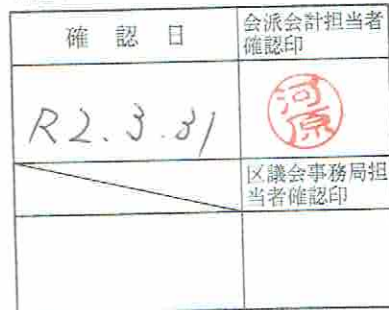 確認日
会派会計担当者
確認印
R2.3.31
河原
区議会事務局担
当者確認印